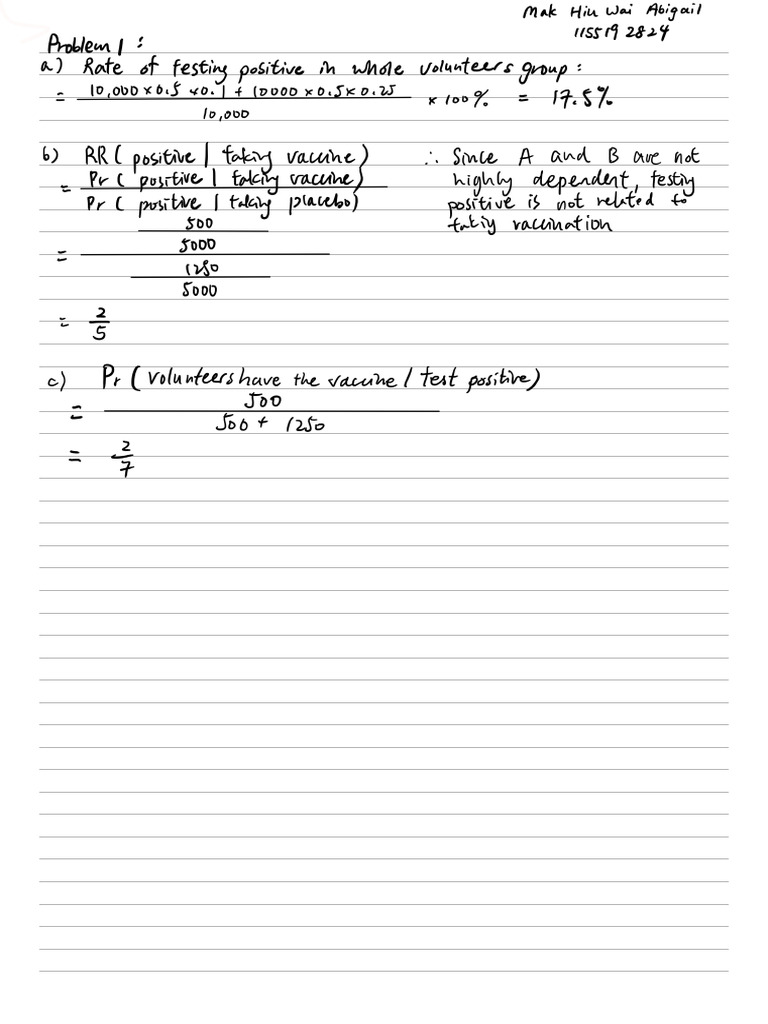 Mak Hiu Wai Abigail
1155192824
Problem 1 :
a) Rate of testing positive in whole volunteers group :
= 10,000 × 0.5 × 0.1 + 10000 × 0.5 × 0.25 / 10,000 × 100% = 17.5%
b) RR ( positive | taking vaccine )
= Pr ( positive | taking vaccine )
Pr ( positive | taking placebo )
= 500
5000
1250
5000
= 2
5
∴ Since A and B are not
highly dependent, testing
positive is not related to
taking vaccination
c) Pr ( volunteers have the vaccine / test positive )
= 500
500 + 1250
= 2
7